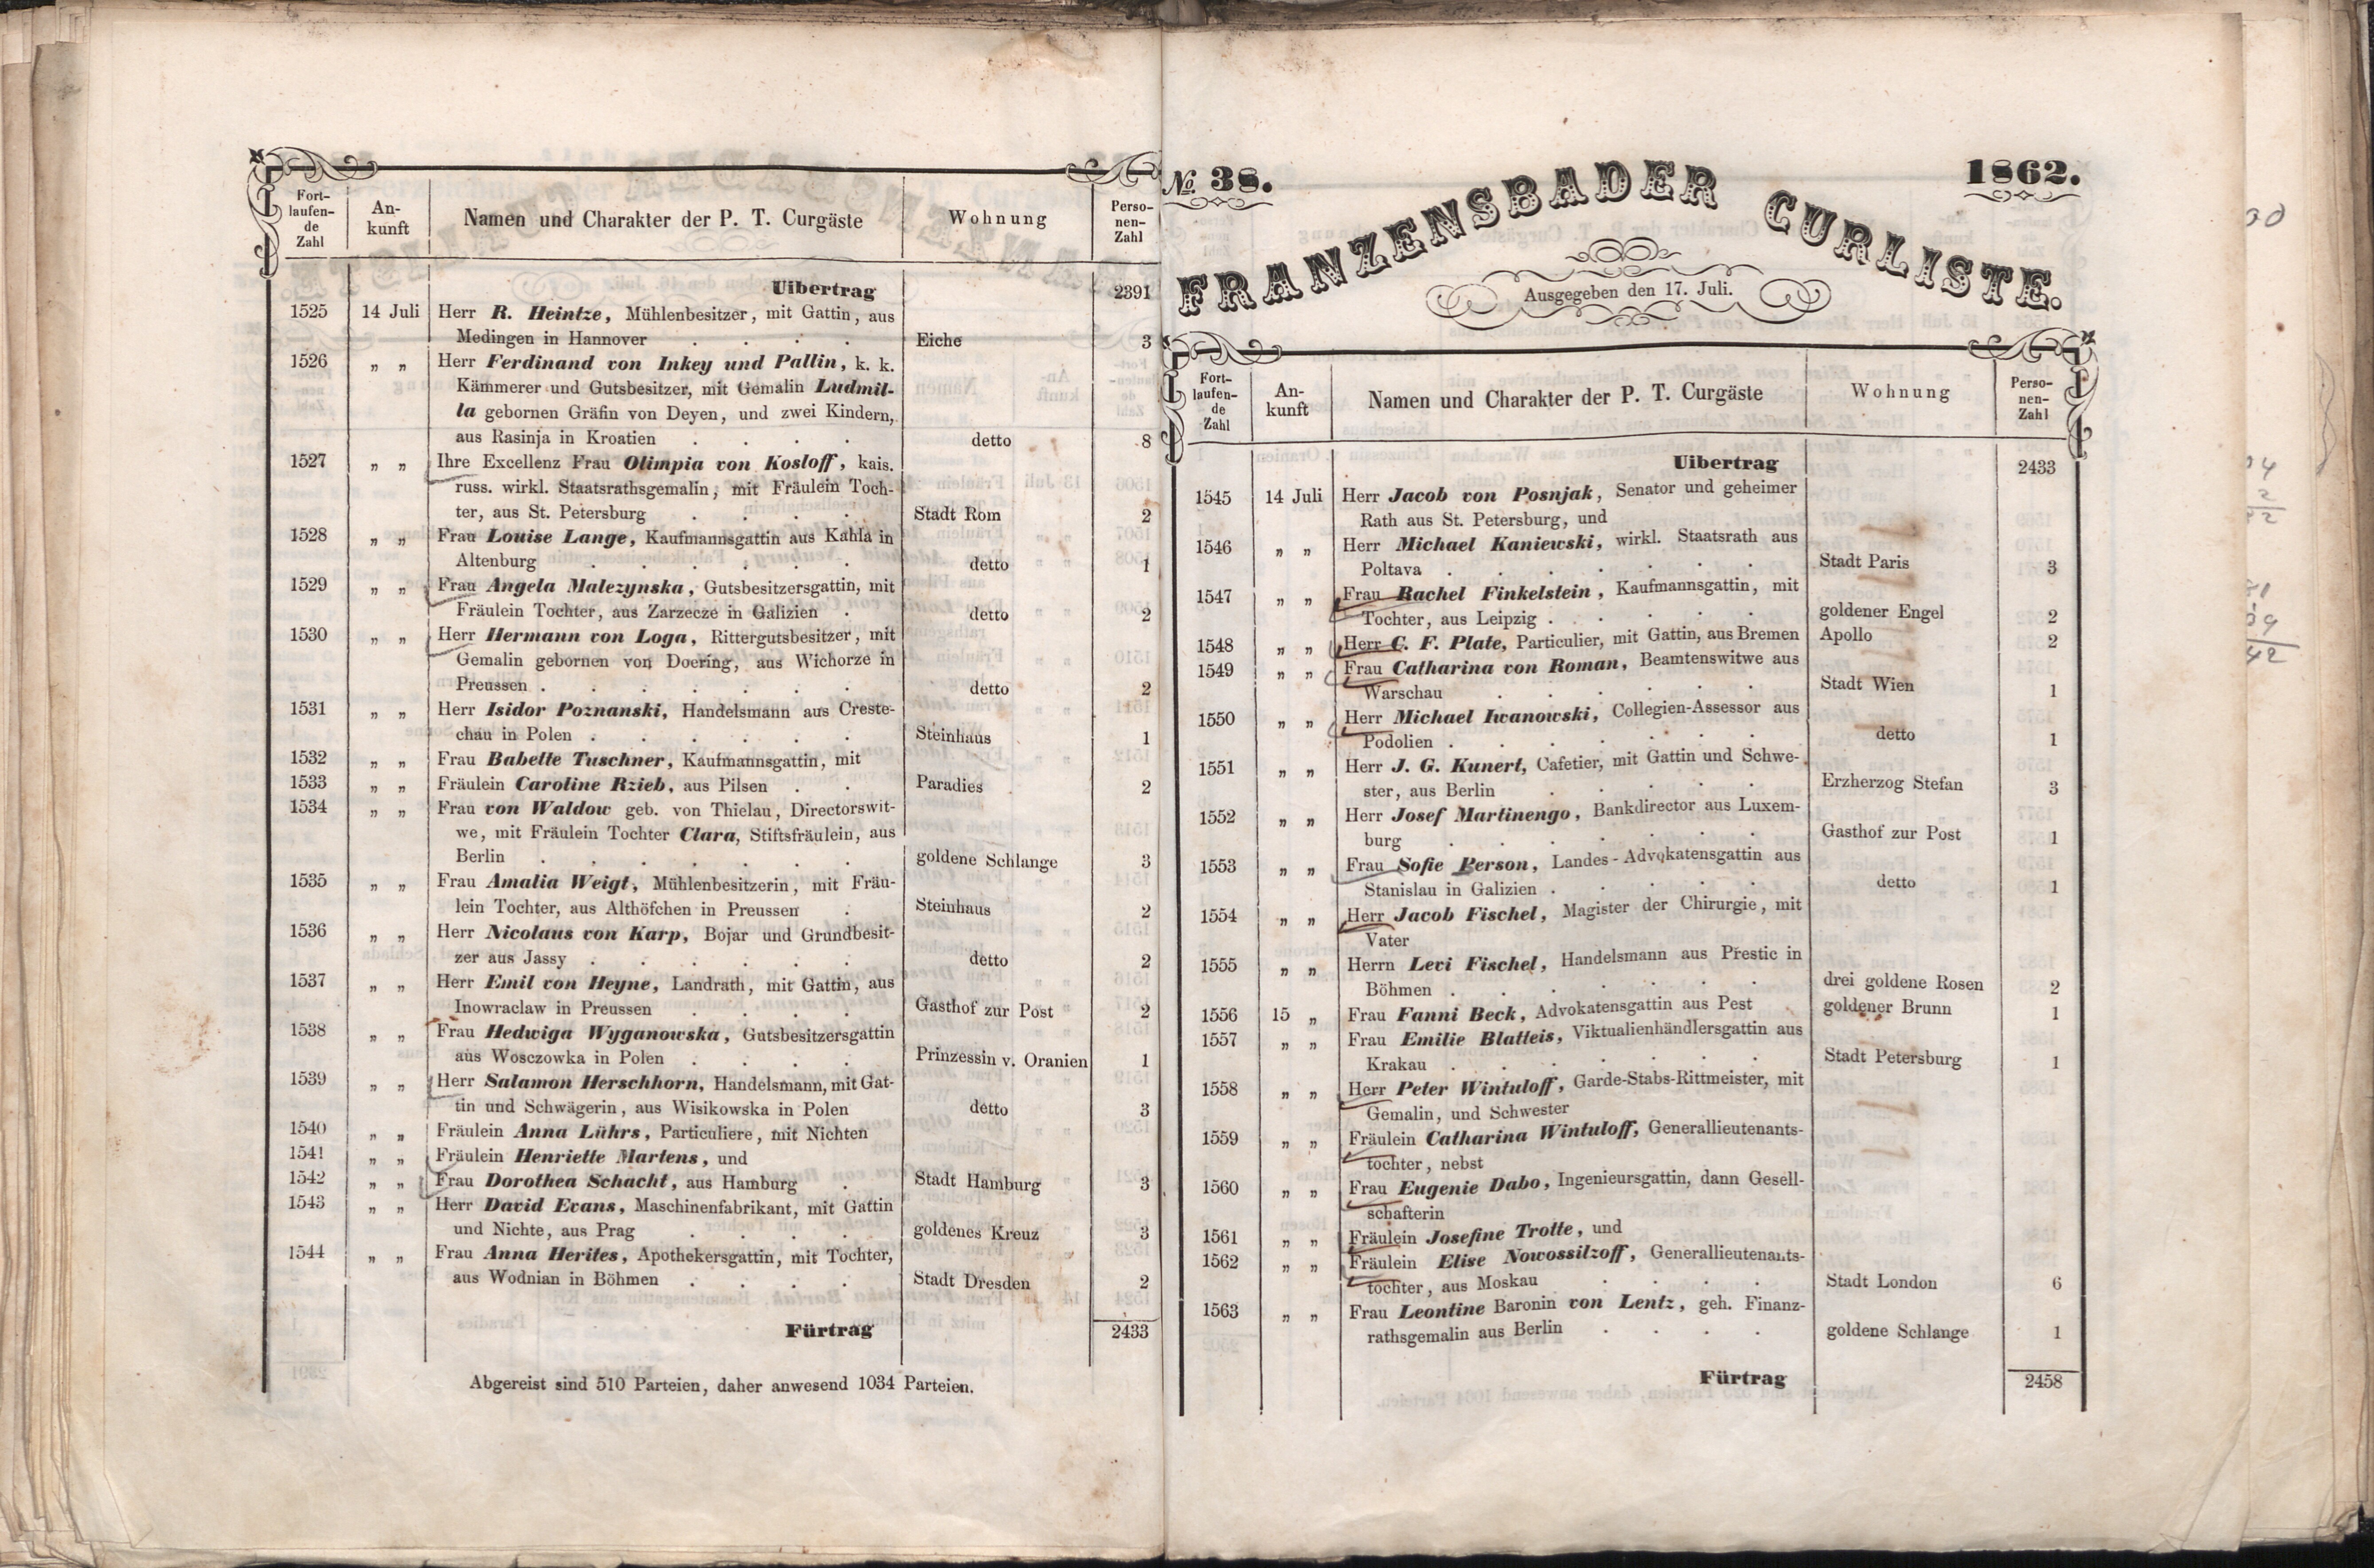 Fort-
laufen-
de
Zahl
An-
kunft
Namen und Charakter der P. T. Curgäste
Wohnung
Perso-
nen-
Zahl
Uibertrag 2391
1525 14 Juli Herr R. Heintze, Mühlenbesitzer, mit Gattin, aus
Medingen in Hannover . . . . Eiche 3
1526 „ „ Herr Ferdinand von Inkey und Pallin, k. k.
Kämmerer und Gutsbesitzer, mit Gemalin Ludmil-
la gebornen Gräfin von Deyen, und zwei Kindern,
aus Rasinja in Kroatien . . . . detto 8
1527 „ „ Ihre Excellenz Frau Olimpia von Kosloff, kais.
russ. wirkl. Staatsrathsgemalin, mit Fräulein Toch-
ter, aus St. Petersburg . . . . Stadt Rom 2
1528 „ „ Frau Louise Lange, Kaufmannsgattin aus Kahla in
Altenburg . . . . . . detto 1
1529 „ „ Frau Angela Malezynska, Gutsbesitzersgattin, mit
Fräulein Tochter, aus Zarzecze in Galizien . detto 2
1530 „ „ Herr Hermann von Loga, Rittergutsbesitzer, mit
Gemalin gebornen von Doering, aus Wichorze in
Preussen . . . . . . . detto 2
1531 „ „ Herr Isidor Poznanski, Handelsmann aus Creste-
chau in Polen . . . . . . Steinhaus 1
1532 „ „ Frau Babette Tuschner, Kaufmannsgattin, mit
1533 „ „ Fräulein Caroline Rzieb, aus Pilsen . . Paradies 2
1534 „ „ Frau von Waldow geb. von Thielau, Directorswit-
we, mit Fräulein Tochter Clara, Stiftsfräulein, aus
Berlin . . . . . . . goldene Schlange 3
1535 „ „ Frau Amalia Weigt, Mühlenbesitzerin, mit Fräu-
lein Tochter, aus Althöfchen in Preussen . Steinhaus 2
1536 „ „ Herr Nicolaus von Karp, Bojar und Grundbesit-
zer aus Jassy . . . . . . detto 2
1537 „ „ Herr Emil von Heyne, Landrath, mit Gattin, aus
Inowraclaw in Preussen . . . . Gasthof zur Post 2
1538 „ „ Frau Hedwiga Wyganowska, Gutsbesitzersgattin
aus Wosczowka in Polen . . . . Prinzessin v. Oranien 1
1539 „ „ Herr Salamon Herschhorn, Handelsmann, mit Gat-
tin und Schwägerin, aus Wisikowska in Polen detto 3
1540 „ „ Fräulein Anna Lührs, Particuliere, mit Nichten
1541 „ „ Fräulein Henriette Martens, und
1542 „ „ Frau Dorothea Schacht, aus Hamburg . Stadt Hamburg 3
1543 „ „ Herr David Evans, Maschinenfabrikant, mit Gattin
und Nichte, aus Prag . . . . goldenes Kreuz 3
1544 „ „ Frau Anna Herites, Apothekersgattin, mit Tochter,
aus Wodnian in Böhmen . . . . Stadt Dresden 2
Fürtrag 2433
Abgereist sind 510 Parteien, daher anwesend 1034 Parteien.
No 38.
1862.
FRANZENSBADER CURLISTE.
Ausgegeben den 17. Juli.
Fort-
laufen-
de
Zahl
An-
kunft
Namen und Charakter der P. T. Curgäste
Wohnung
Perso-
nen-
Zahl
Uibertrag 2433
1545 14 Juli Herr Jacob von Posnjak, Senator und geheimer
Rath aus St. Petersburg, und
1546 „ „ Herr Michael Kaniewski, wirkl. Staatsrath aus
Poltava . . . . . . . Stadt Paris 3
1547 „ „ Frau Rachel Finkelstein, Kaufmannsgattin, mit
Tochter, aus Leipzig . . . . . goldener Engel 2
1548 „ „ Herr C. F. Plate, Particulier, mit Gattin, aus Bremen Apollo 2
1549 „ „ Frau Catharina von Roman, Beamtenswitwe aus
Warschau . . . . . . Stadt Wien 1
1550 „ „ Herr Michael Iwanowski, Collegien-Assessor aus
Podolien . . . . . . . detto 1
1551 „ „ Herr J. G. Kunert, Cafetier, mit Gattin und Schwe-
ster, aus Berlin . . . . . Erzherzog Stefan 3
1552 „ „ Herr Josef Martinengo, Bankdirector aus Luxem-
burg . . . . . . . Gasthof zur Post 1
1553 „ „ Frau Sofie Berson, Landes-Advokatensgattin aus
Stanislau in Galizien . . . . . detto 1
1554 „ „ Herr Jacob Fischel, Magister der Chirurgie, mit
Vater
1555 „ „ Herrn Levi Fischel, Handelsmann aus Přestic in
Böhmen . . . . . . . drei goldene Rosen 2
1556 15 „ Frau Fanni Beck, Advokatensgattin aus Pest goldener Brunn 1
1557 „ „ Frau Emilie Blatteis, Viktualienhändlersgattin aus
Krakau . . . . . . . Stadt Petersburg 1
1558 „ „ Herr Peter Wintuloff, Garde-Stabs-Rittmeister, mit
Gemalin, und Schwester
1559 „ „ Fräulein Catharina Wintuloff, Generallieutenants-
tochter, nebst
1560 „ „ Frau Eugenie Dabo, Ingenieursgattin, dann Gesell-
schafterin
1561 „ „ Fräulein Josefine Trotte, und
1562 „ „ Fräulein Elise Nowossilzoff, Generallieutenants-
tochter, aus Moskau . . . . Stadt London 6
1563 „ „ Frau Leontine Baronin von Lentz, geh. Finanz-
rathsgemalin aus Berlin . . . . goldene Schlange 1
Fürtrag 2458